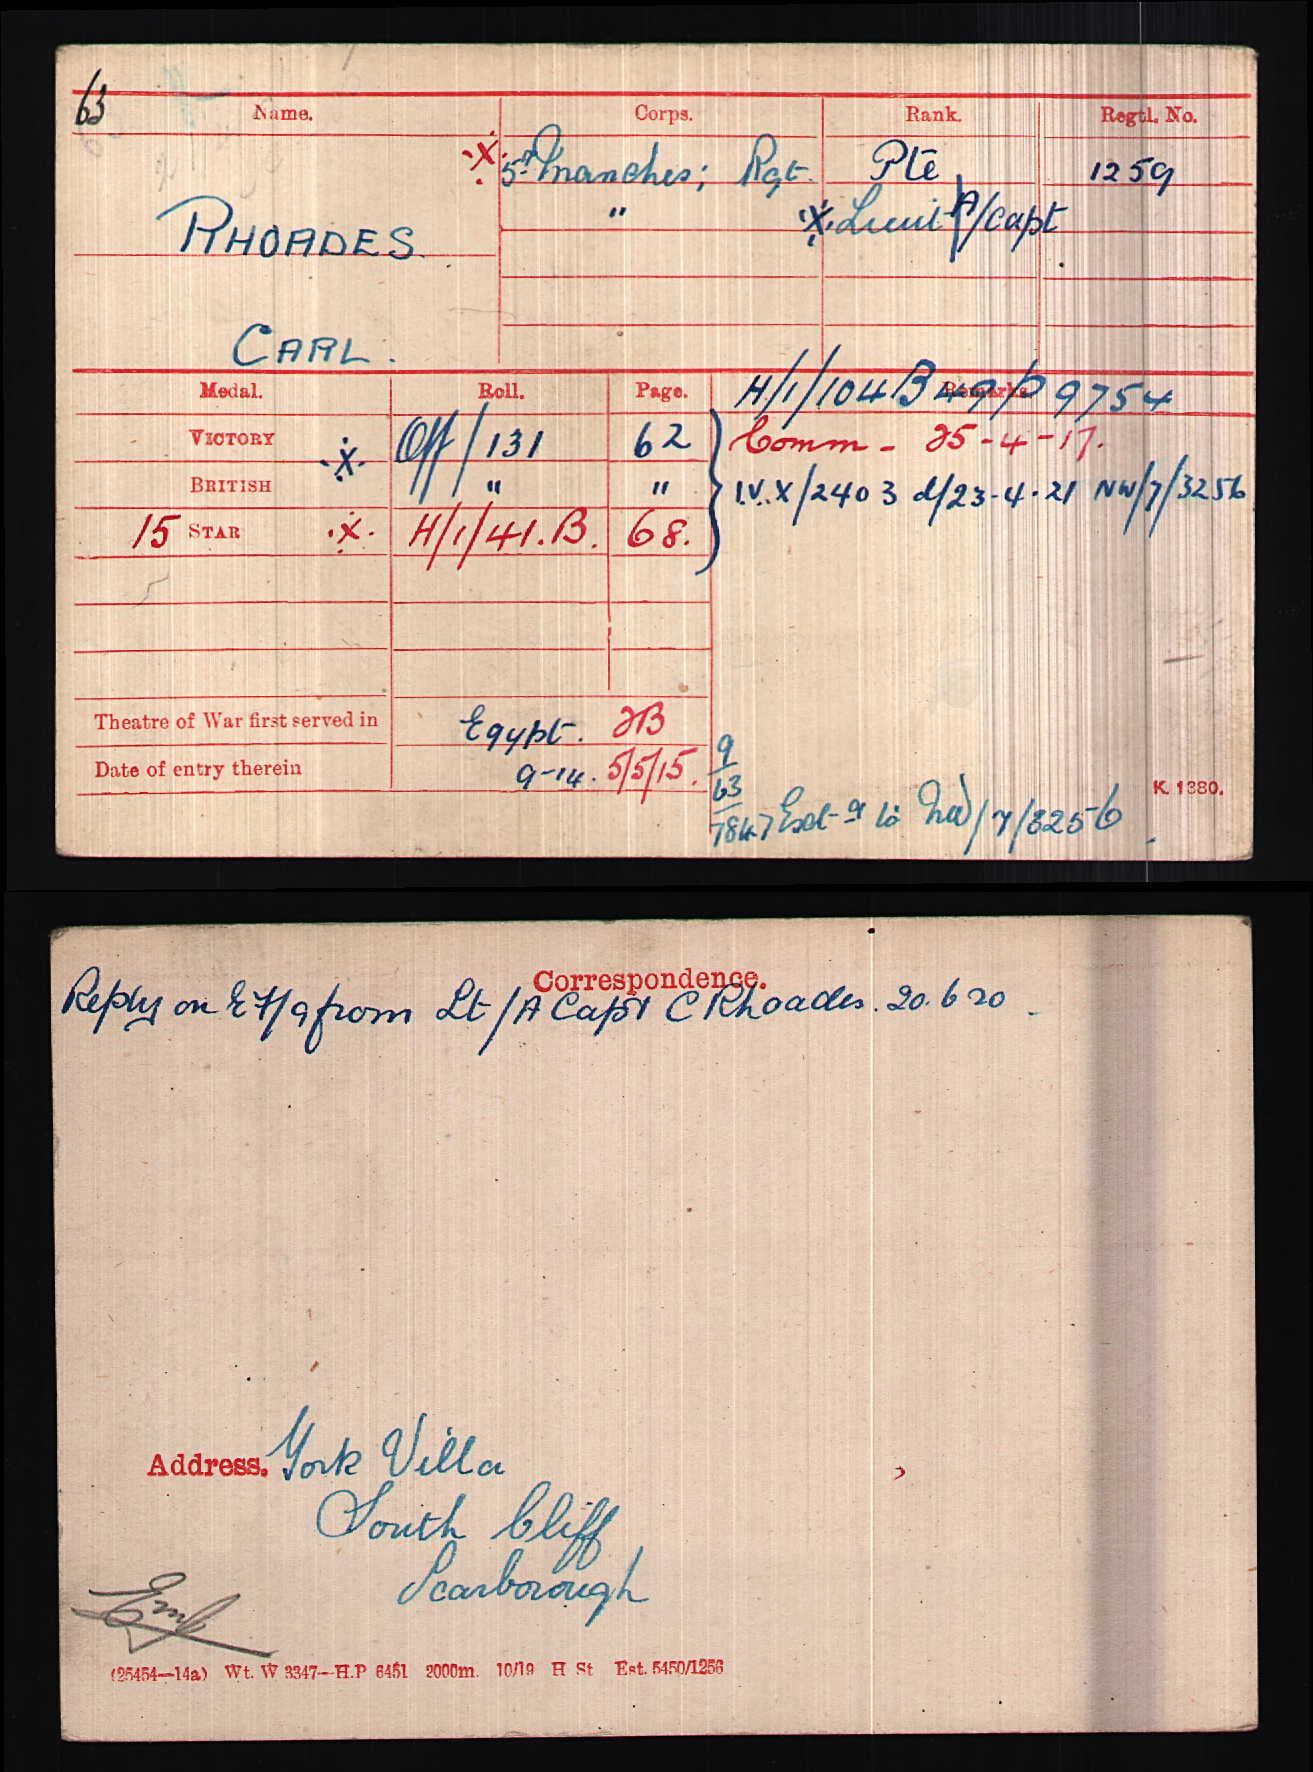 63
Name. Corps. Rank. Regtl. No.
X 5th Manches; Rgt. Pte 1259
" X Lieut A/Capt
RHOADES.
CARL.
Medal. Roll. Page. Remarks.
H/1/104B49/P 9754
VICTORY X Off/131 62 Comm - 25-4-17.
BRITISH " " I.V.X/2403 d/23-4-21 NW/7/3256
15 STAR X H/1/41.B. 68.
Theatre of War first served in Egypt. 2B
Date of entry therein 9-14. 5/5/15.
9
63
7847
K. 1380.
NW/7/3256
Correspondence.
Reply on E F/9 from Lt/A Capt C Rhoades. 20.6 20
Address. York Villa
South Cliff
Scarborough
(25454—14a) Wt. W 3347—H.P 6451 2000m. 10/19 H St Est. 5450/1256